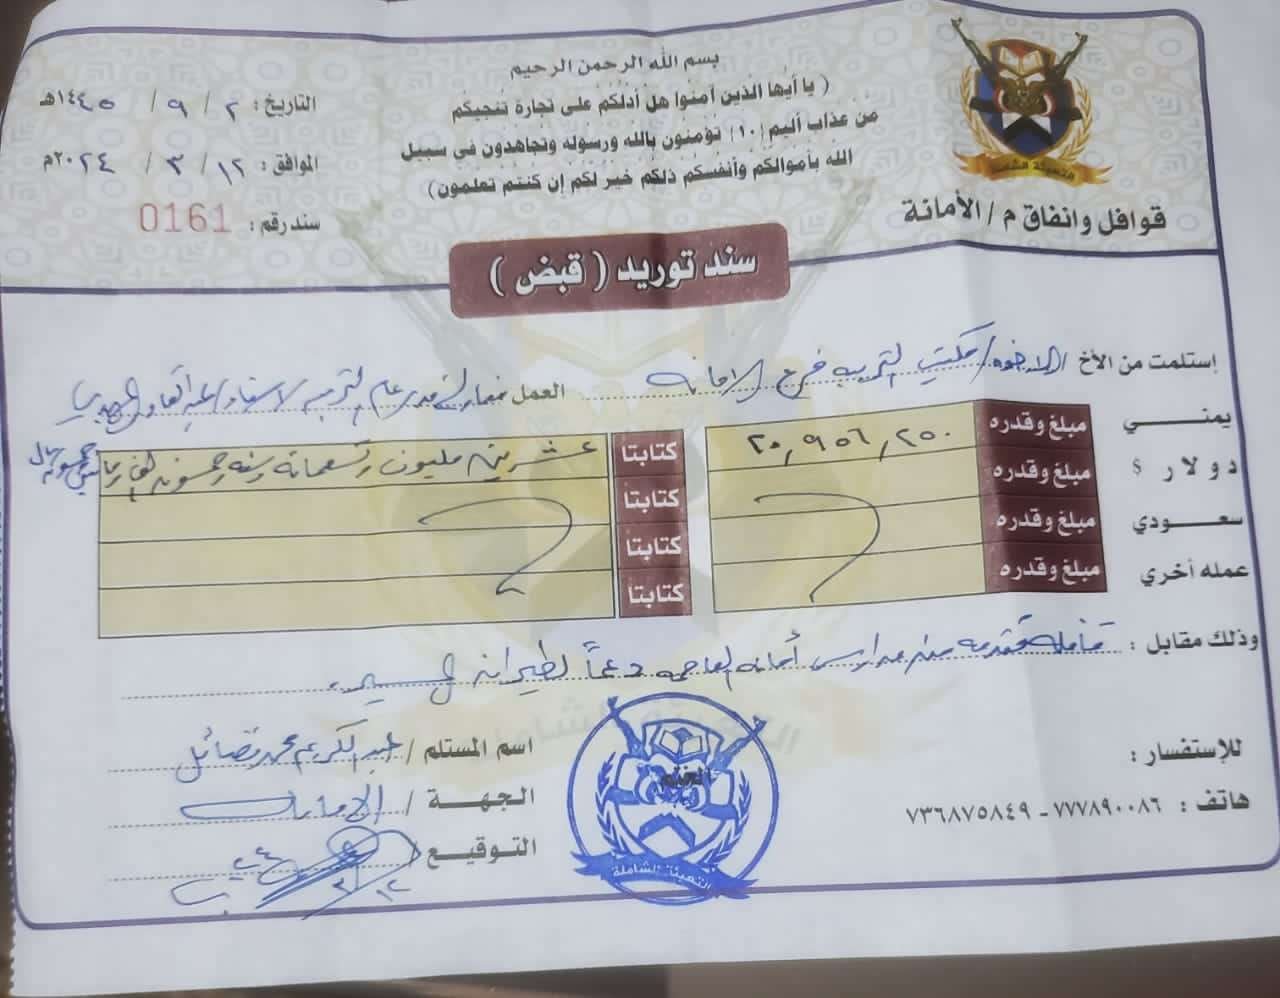 بسم الله الرحمن الرحيم
( يا أيها الذين آمنوا هل أدلكم على تجارة تنجيكم
من عذاب أليم (١٠) تؤمنون بالله ورسوله وتجاهدون في سبيل
الله بأموالكم وأنفسكم ذلكم خير لكم إن كنتم تعلمون)
التعبئة الشاملة
قوافل وانفاق م / الأمانة
التاريخ : ٢ / ٩ / ١٤٤٥هـ
الموافق : ١٢ / ٣ / ٢٠٢٤م
سند رقم : 0161
سند توريد ( قبض )
إستلمت من الأخ / الاخوه / مكتب التربيه فرع الامانه العمل مدير عام التربيه الاستاذ عبدالقادر المهدي
يمنـــي مبلغ وقدره ٢٠,٩٥٦,٢٥٠ كتابتا عشرين مليون وتسعمائة وسته وخمسون الف ومائتين وخمسون ريال
دولار $ مبلغ وقدره كتابتا
سعـــودي مبلغ وقدره كتابتا
عمله أخري مبلغ وقدره كتابتا
وذلك مقابل : قافله مقدمه من مدارس أمانه العاصمه دعماً لطيران المسير
للإستفسار :
هاتف : ٧٧٧٨٩٠٠٨٦ - ٧٣٦٨٧٥٨٤٩
اسم المستلم / عبدالكريم محمد
الجهـــة / الامانه
التوقيـــع /
١٢ / ٣
الختم
التعبئة الشاملة